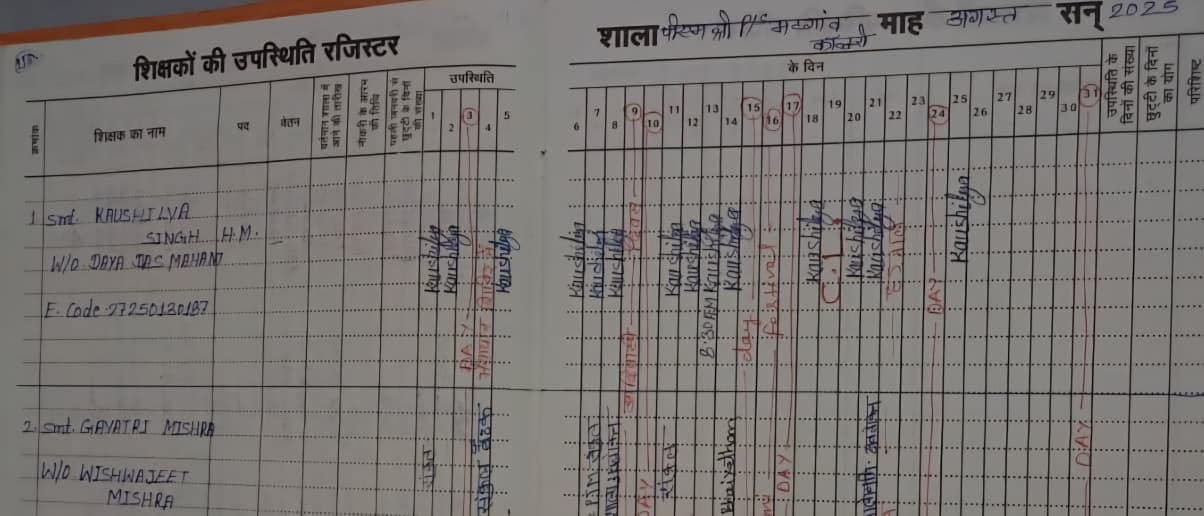 शिक्षकों की उपस्थिति रजिस्टर
शाला पीएम श्री P/S माह अगस्त सन् 2025
क्रमांक
शिक्षक का नाम
पद
वेतन
वर्तमान शाला में आने की तारीख
नौकरी के आरंभ की तिथि
पहली जनवरी से छुट्टी के दिनों की संख्या
उपस्थिति
के दिन
1 2 3 4 5 6 7 8 9 10 11 12 13 14 15 16 17 18 19 20 21 22 23 24 25 26 27 28 29 30 31
उपस्थिति के दिनों की संख्या
छुट्टी के दिनों का योग
परिशिष्ट
1 Smt. KAUSHILYA
SINGH H.M.
W/O DAYA DAS MAHANT
E. Code 27250130187
Kaushilya
Kaushilya
DAY
Kaushilya
Kaushilya
Kaushilya
Kaushilya
आदिवासी दिवस
Kaushilya
Kaushilya
Kaushilya
Kaushilya
day
festival
Kaushilya
C.L.
Kaushilya
Kaushilya
DAY
Kaushilya
DAY
2. Smt. GAYATRI MISHRA
W/O WISHWAJEET
MISHRA
संकुल
संकुल बैठक
DAY
संकुल
DAY